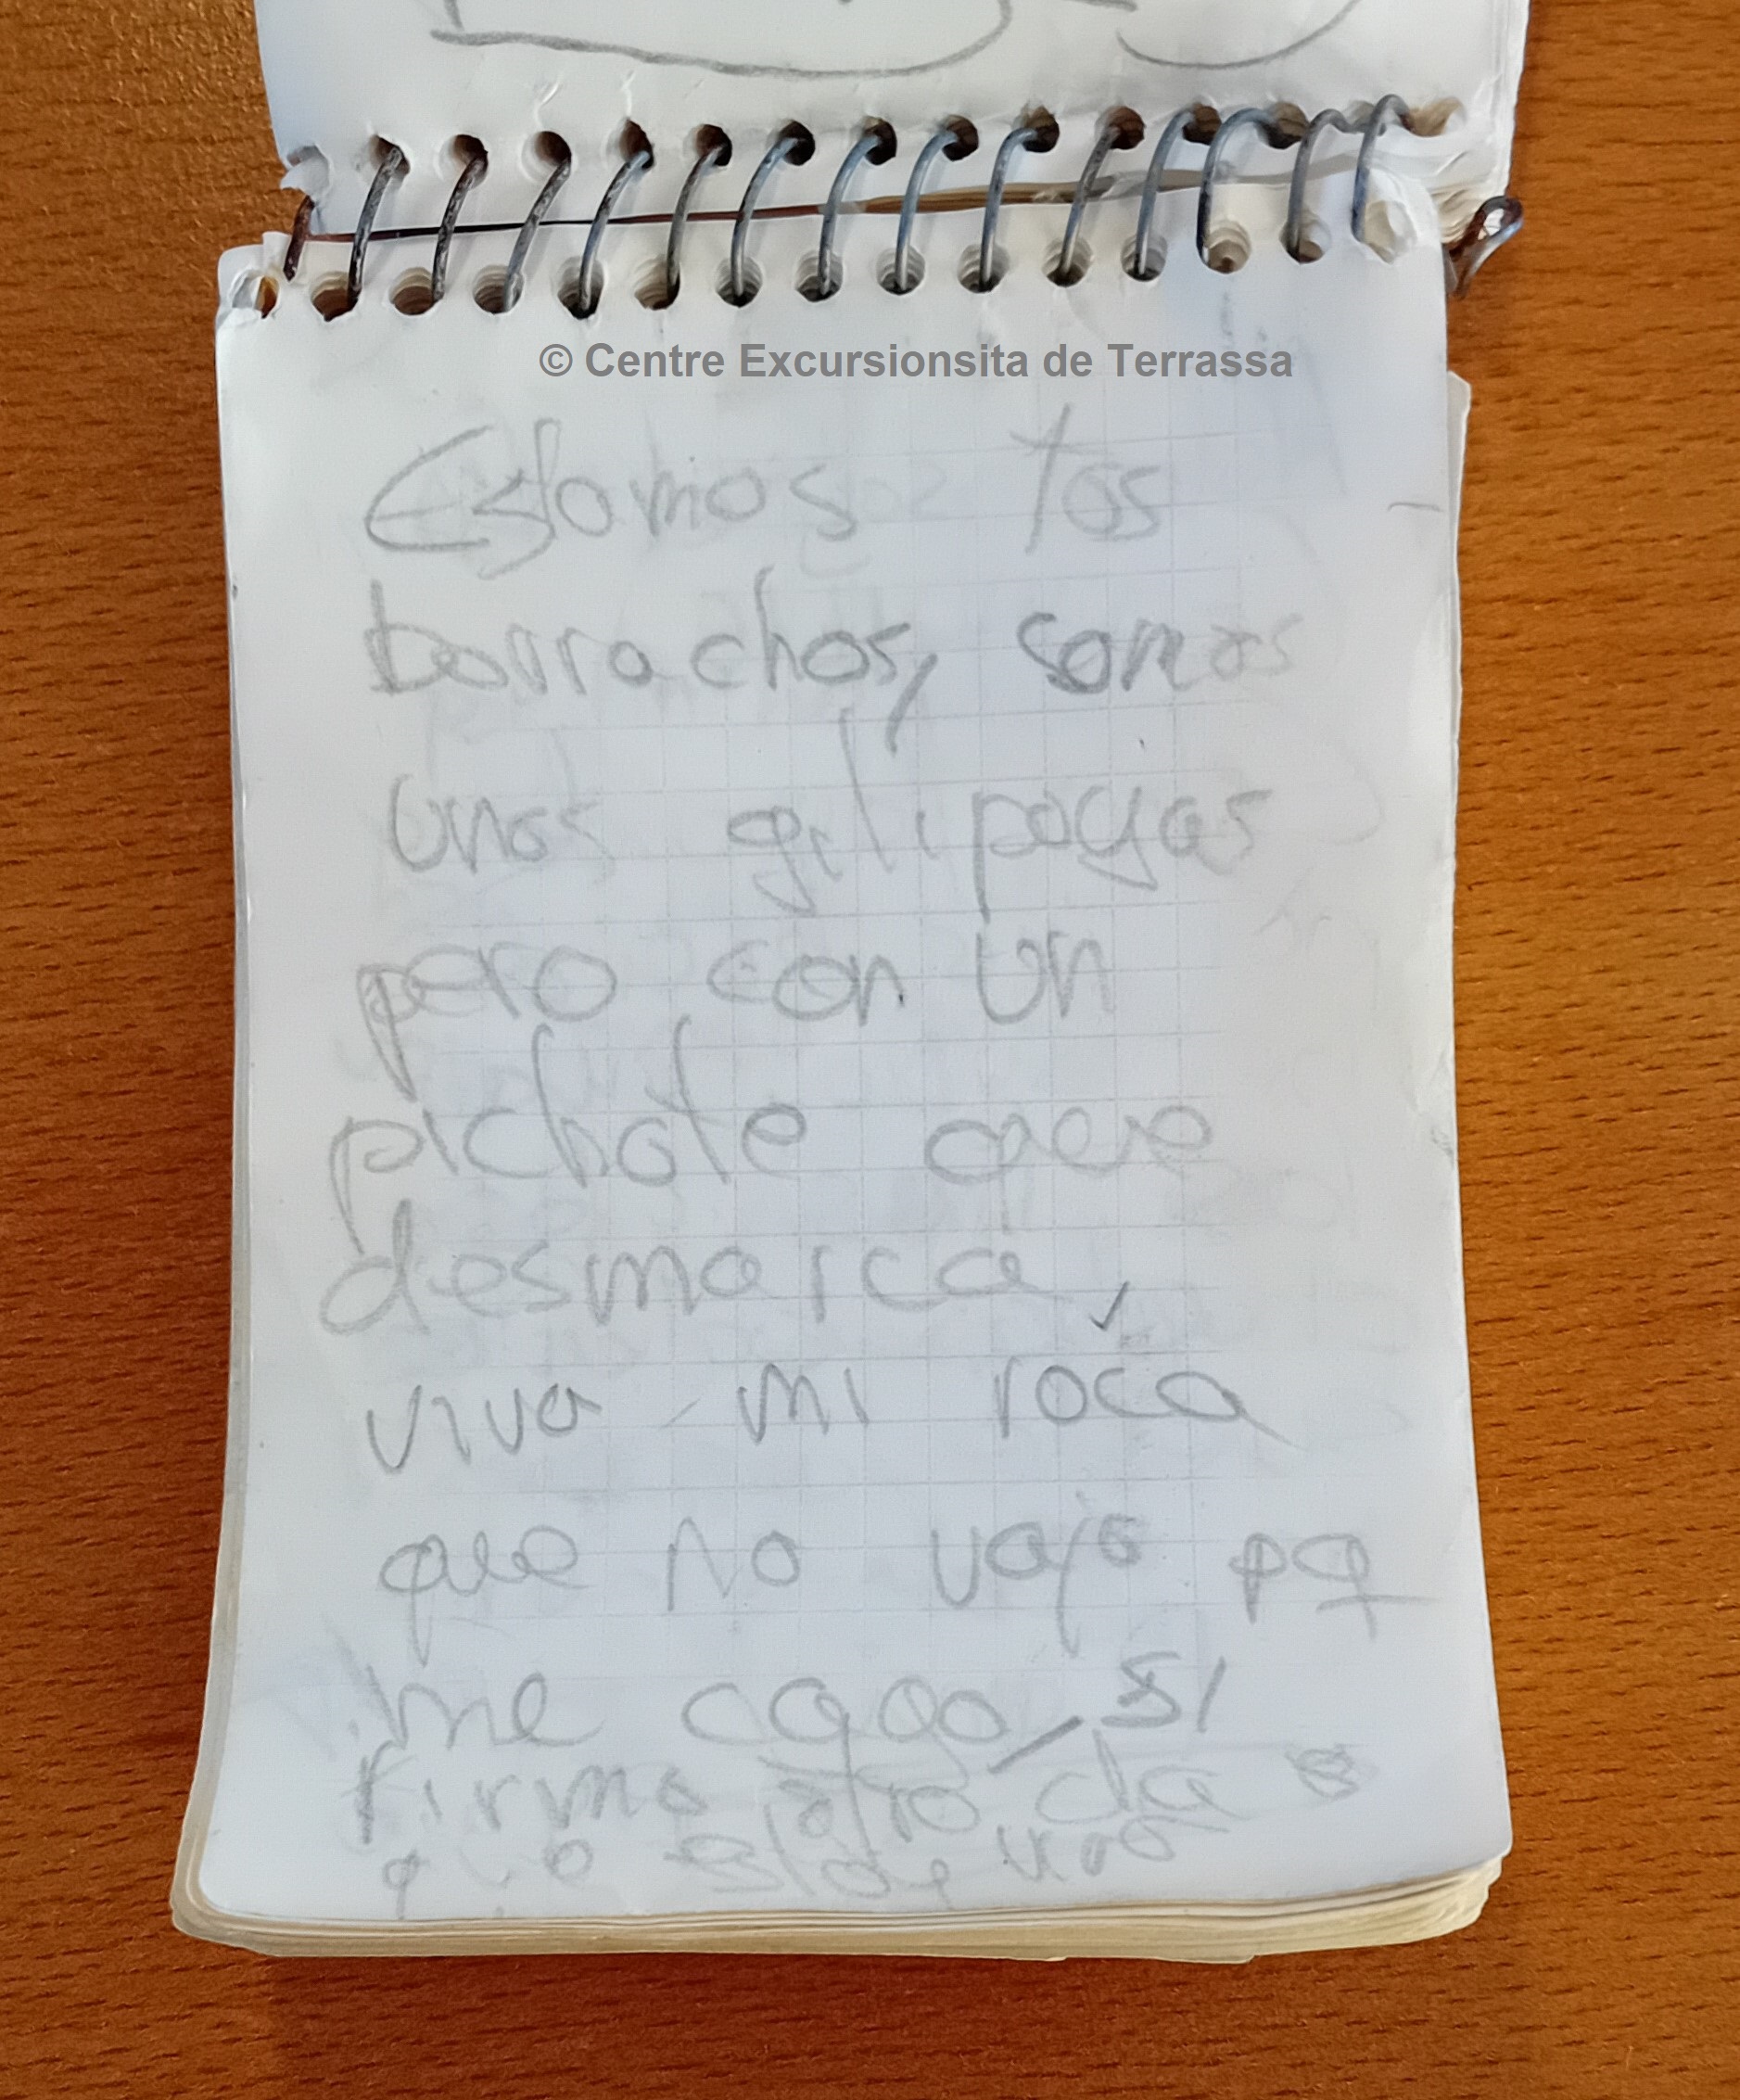 © Centre Excursionsita de Terrassa
Estamos tos
borrachos, somos
unos gilipoyas
pero con un
pichote que
desmarca,
viva mi roca
que no vajo pq
me cago, si
firma otro da
que